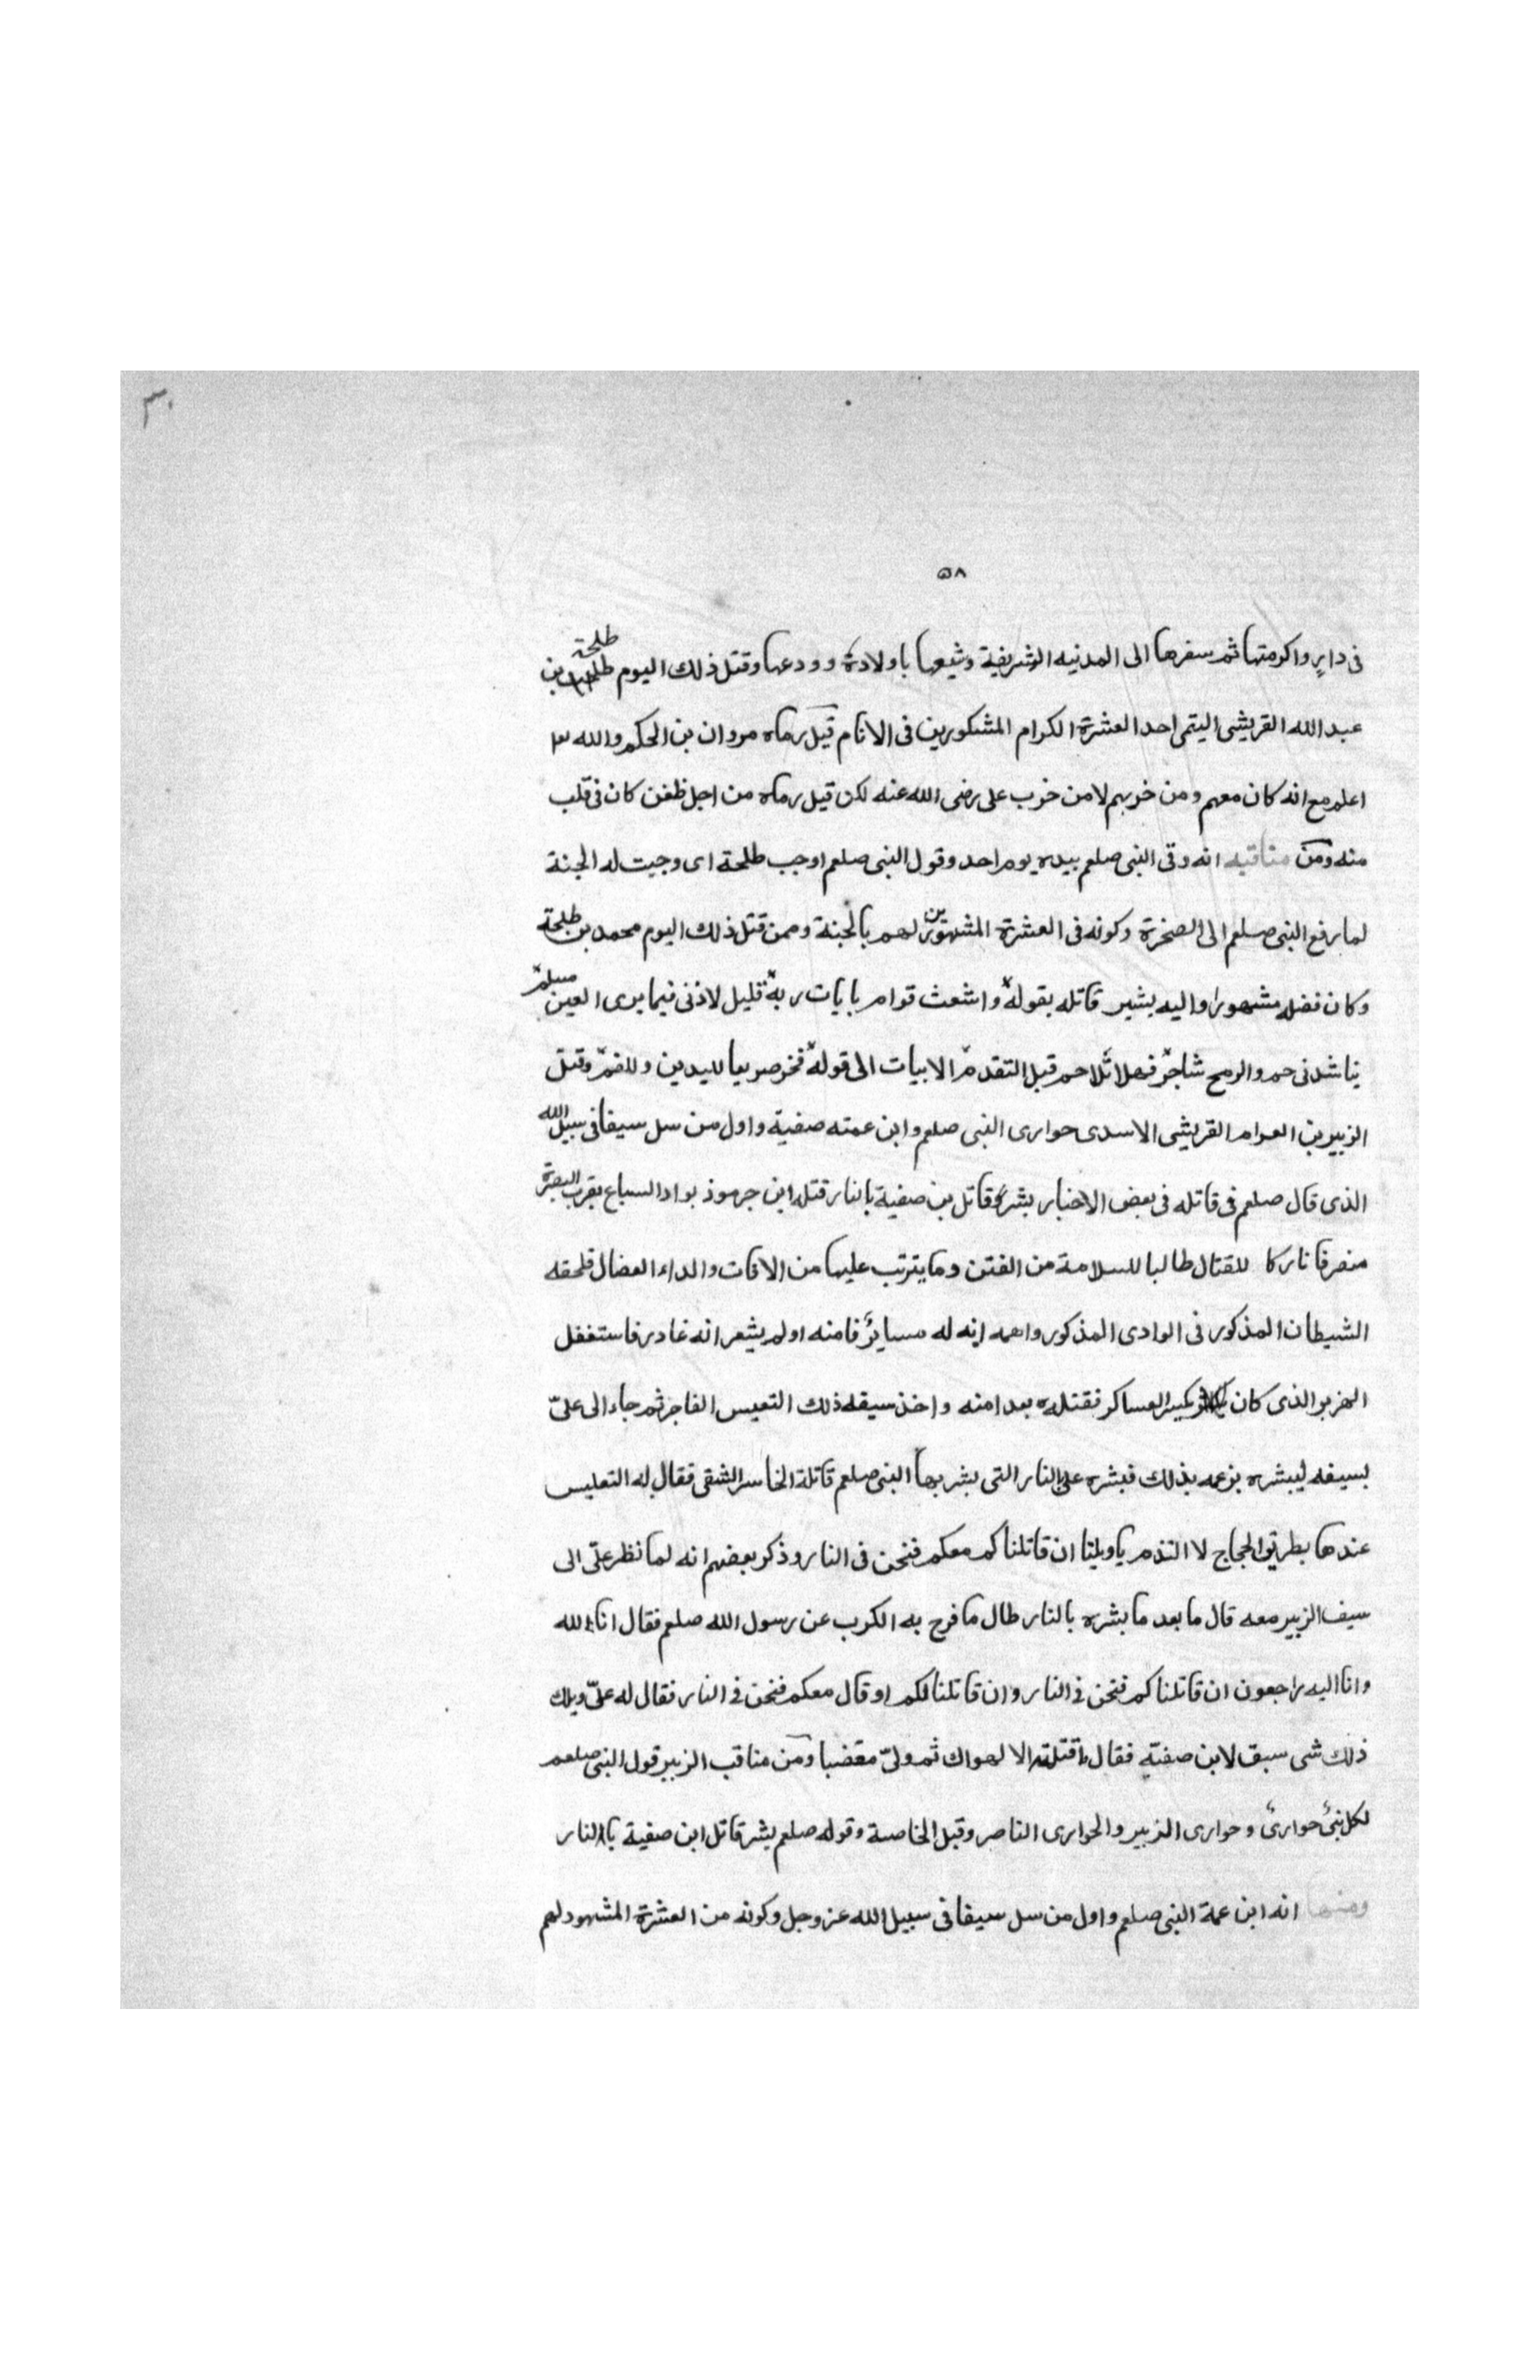 ٣٠
٥٨
فى دارٍ واكرمتها ثم سفرها الى المدنيه الشريفة وشيعها باولادة وودعها وقتل ذلك اليوم طلحة بن
عبد الله القريشى اليتمى احد العشرة الكرام المشكورين فى الانام قيل رماه مروان بن الحكم والله
اعلم مع انه كان معهم ومن خربهم لا من خرب على رضى الله عنه لكن قيل رماه من اجل ظغن كان فى قلب
منه ومن مناقبه انه وقى النبى صلعم بيده يوم احد وقول النبى صلعم اوجب طلحة اى وجبت له الجنة
لما رفع النبى صلعم الى الصخرة وكونه فى العشرة المشهورين لهم بالجنة وممن قتل ذلك اليوم محمد بن طلحة
وكان فضله مشهورا واليه يشير قاتله بقوله واشعث قوام بايات ربة قليل لاذنى فيما يرى العين مسلم
يناشدنى حم والرمح شاجر فهلا تلا حم قبل التقدم الابيات الى قوله فخر صريعا لليدين وللفم وقتل
الزبير بن العوام القريشى الاسدى حوارى النبى صلعم وابن عمته صفية واول من سل سيفا فى سبيل الله
الذى قال صلعم فى قاتله فى بعض الاخبار بشر قاتل بن صفية بالنار قتله ابن جرموذ بواد السباع بقرب البصرة
منصرفا تاركا للقتال طالبا للسلامة من الفتن وما يترتب عليها من الافات والداء العضال فلحقه
الشيطان المذكور فى الوادى المذكور واهمه انه له مسايرٌ فامنه اولم يشعر انه غادر فاستغفل
الهزبر الذى كان يكسر العساكر فقتله بعد امنه واخذ سيفه ذلك التعيس الفاجر ثم جاء الى علىّ
بسيفه ليبشره بزعمه بذلك فبشره على بالنار التى بشر بها النبى صلعم قاتلة الخاسر الشقى فقال له التعليس
عندها بطريق الحجاج لا التذم يا ويلنا ان قاتلناكم معكم فنحن فى النار وذكر بعضهم انه لما نظر على الى
سيف الزبير معه قال ما بعد ما بشره بالنار طال ما فرج به الكرب عن رسول الله صلعم فقال انا لله
وانا اليه راجعون ان قاتلناكم فنحن فى النار وان قاتلنا لكم او قال معكم فنحن فى النار فقال له علىّ ويلك
ذلك شى سبق لابن صفية فقال ما قتلته الا لهواك ثم ولىّ مغضبا ومن مناقب الزبير قول النبى صلعم
لكل نبىٌ حوارىٌ وحوارى الزبير والحوارى الناصر وقيل الخاصة وقوله صلعم بشر قاتل ابن صفية بالنار
ومنها انه ابن عمة النبى صلعم واول من سل سيفا فى سبيل الله عز وجل وكونه من العشرة المشهود لهم